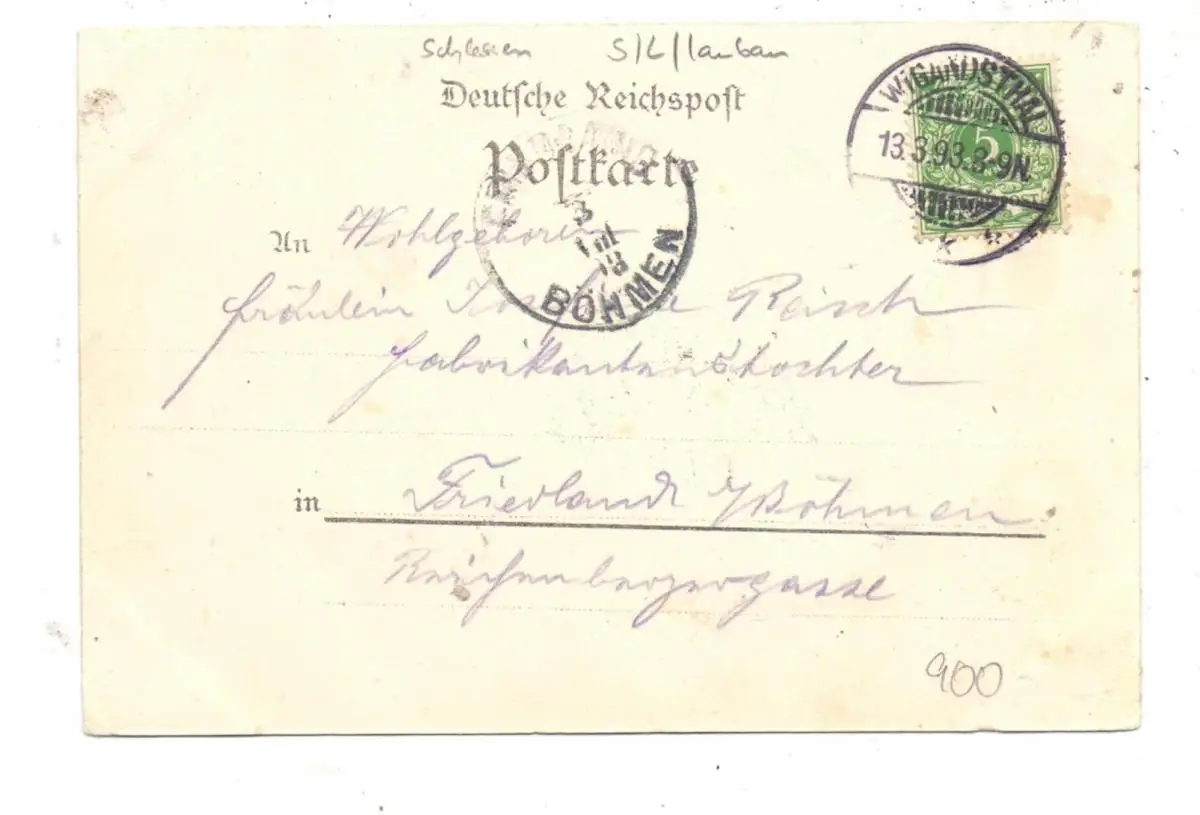 Schlesien S/L/lauban
Deutsche Reichspost
Postkarte
WIGANDSTHAL
13.3.93.3-9N.
5
An Wohlgeboren
Fräulein Reisch
Fabrikantenstochter
3
BÖHMEN
in Friedland Böhmen
Reichenbergergasse
900